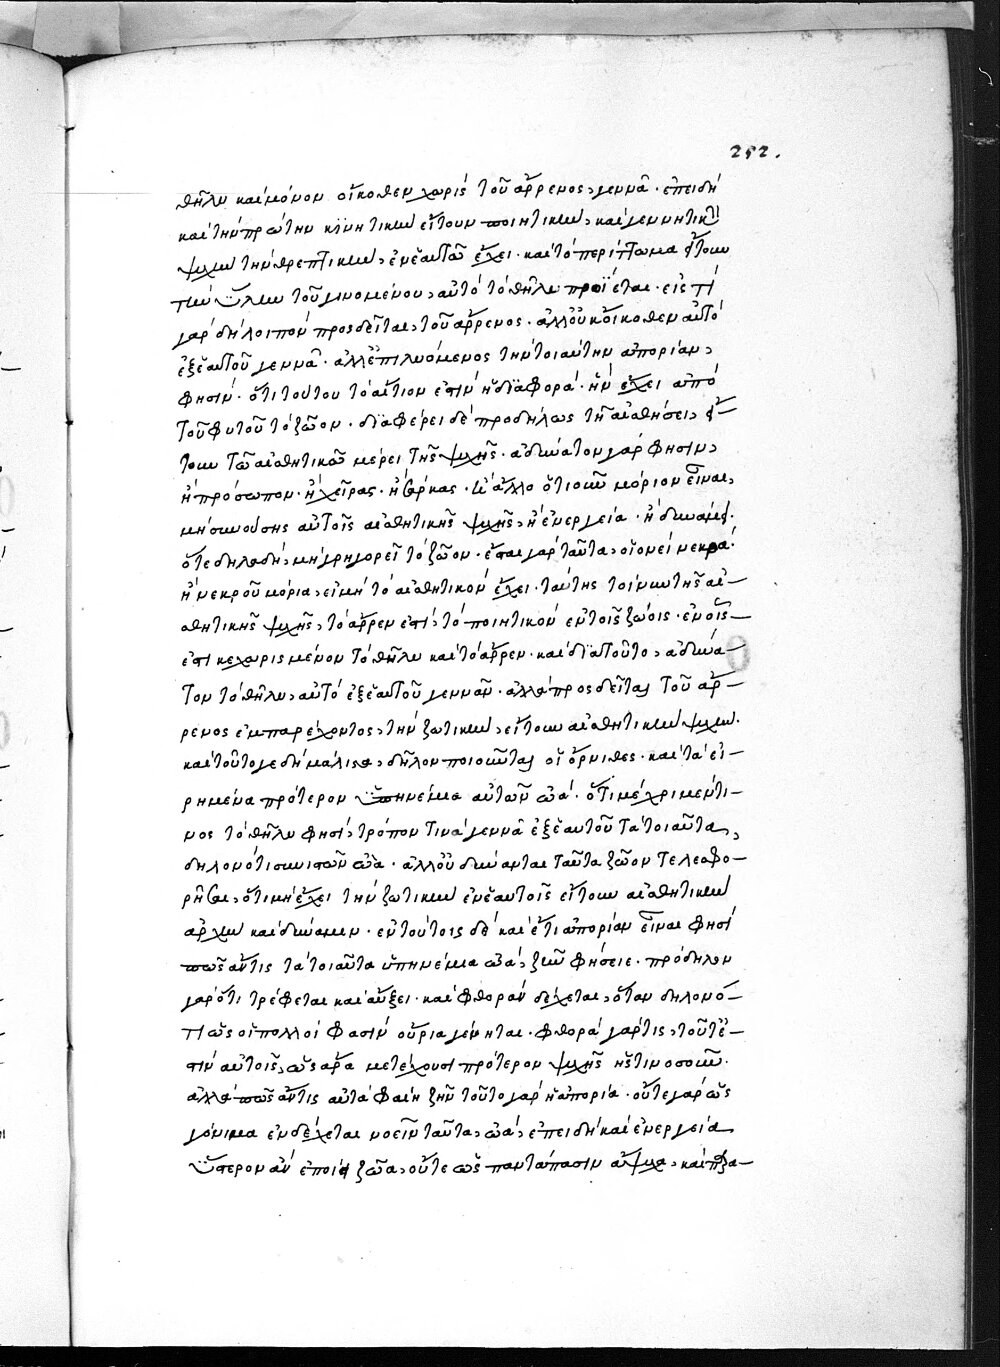 252.
θῆλυ καὶ μόνον οἴκοθεν χωρὶς τοῦ ἄρρενος, γεννᾶ· ἐπειδὴ
καὶ τὴν πρώτην κινητικὴν εἴτουν ποιητικὴν, καὶ γεννητικὴν
ψυχὴν τὴν θρεπτικὴν, ἐν ἑαυτῶ ἔχει· καὶ τὸ περίττωμα ἤτοι
τὴν ὕλην τοῦ γινομένου, αὐτὸ τὸ θῆλυ προΐεται· εἰς τί
γὰρ δὴ λοιπὸν προσδεῖται, τοῦ ἄρρενος· ἀλλ' οὐκ οἴκοθεν αὐτὸ
ἐξ ἑαυτοῦ γεννᾶ· ἀλλ' ἐπιλυόμενος τὴν τοιαύτην ἀπορίαν,
φησὶν· ὅτι τούτου τὸ αἴτιον ἐστὶν ἡ διαφορὰ· ἣν ἔχει ἀπὸ
τοῦ φυτοῦ τὸ ζῶον· διαφέρει δὲ προδήλως τῆ αἰσθήσει,
τῶ αἰσθητικῶ μέρει τῆς ψυχῆς· ἀδύνατον γὰρ φησιν,
ἢ πρόσωπον· ἢ χεῖρας· ἢ σάρκας· ἢ ἄλλο ὁτιοῦν μόριον εἶναι,
μὴ συνούσης αὐτοῖς αἰσθητικῆς ψυχῆς, ἢ ἐνεργεία· ἢ δυνάμει·
ὅτε δηλαδὴ, μὴ γρηγορεῖ τὸ ζῶον· ἔσται γὰρ ταῦτα, οἱονεὶ νεκρὰ·
ἢ νεκροῦ μόρια, εἰ μὴ τὸ αἰσθητικὸν ἔχει· ταύτης τοίνυν τῆς αἰ-
σθητικῆς ψυχῆς, τὸ ἄρρεν ἐστὶ, τὸ ποιητικὸν ἐν τοῖς ζώοις· ἐν οἷς
ἐστὶ κεχωρισμένον τὸ θῆλυ καὶ τὸ ἄρρεν· καὶ διὰ τοῦτο, ἀδύνα-
τον τὸ θῆλυ, αὐτὸ ἐξ ἑαυτοῦ γεννᾶν· ἀλλὰ προσδεῖται τοῦ ἄρ-
ρενος ἐμπαρέχοντος, τὴν ζωτικὴν, εἴτουν αἰσθητικὴν ψυχὴν·
καὶ τοῦτό γε δὴ μάλιστα, δῆλον ποιοῦνται οἱ ὄρνιθες· καὶ τὰ εἰ-
ρημένα πρότερον ὑπηνέμια αὐτῶν ὠὰ· ὅτι μέχρι μέν τι-
νος τὸ θῆλυ φησὶ, τρόπον τινὰ γεννᾶ ἐξ ἑαυτοῦ τὰ τοιαῦτα,
δηλονότι συνιστῶν ὠά· ἀλλ' οὐ δύνανται ταῦτα ζῶον τελεσφο-
ρῆσαι, ὅτι μὴ ἔχει τὴν ζωτικὴν ἐν ἑαυτοῖς εἴτουν αἰσθητικὴν
ἀρχὴν καὶ δύναμιν· ἐν τούτοις δὲ καὶ ἔτι ἀπορίαν εἶναι φησὶ
πῶς ἄν τις τὰ τοιαῦτα ὑπηνέμια ὠὰ, ζῆν φήσειε· πρόδηλον
γὰρ ὅτι τρέφεται καὶ αὔξει· καὶ φθορὰν δέχεται, ὅταν δηλονό-
τι ὡς οἱ πολλοὶ φασὶν οὔρια γένηται· φθορὰ γάρ τις, τοῦτ' ἔ-
στιν αὐτοῖς, ὡς ἄρα μετέχουσι πρότερον ψυχῆς ἧς τινοσοῦν·
ἀλλὰ πῶς ἄν τις αὐτὰ φαίη ζῆν τοῦτο γὰρ ἡ ἀπορία· οὔτε γὰρ ὡς
γόνιμα ἐνδέχεται νοεῖν ταῦτα, ὠὰ, ἐπειδὴ καὶ ἐνεργεία
ὕστερον ἂν ἐποίει ζῶα, οὔτε ὡς παντάπασιν ἄψυχα,